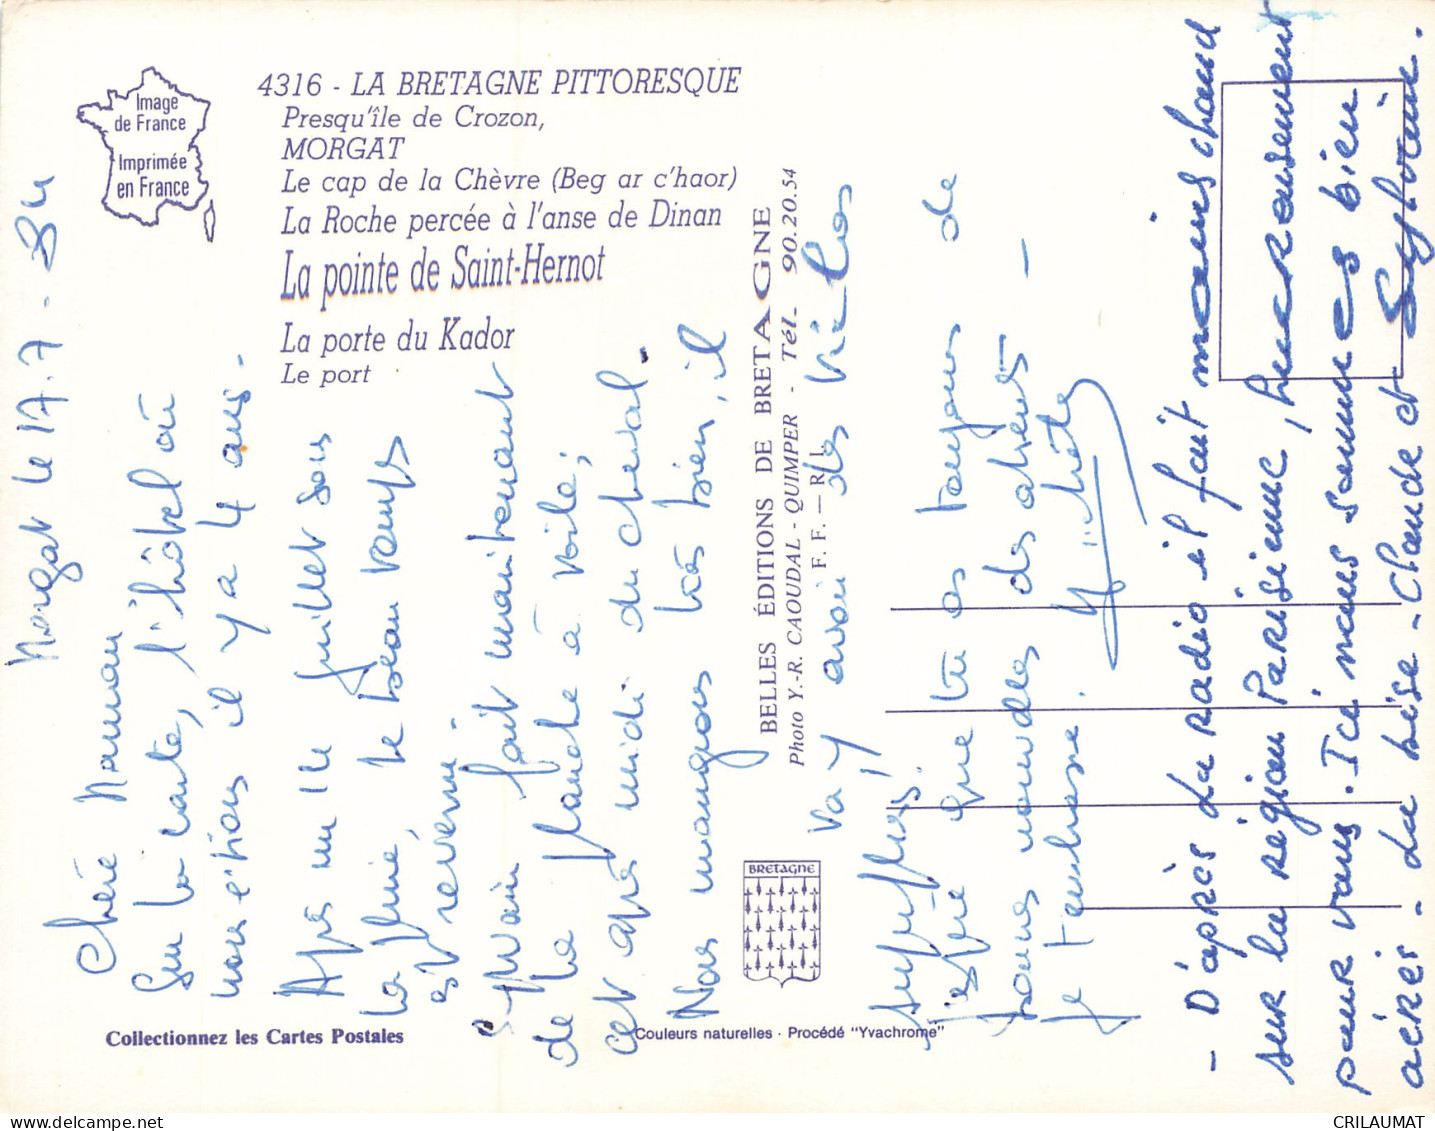 Image
de France
Imprimée
en France
4316 - LA BRETAGNE PITTORESQUE
Presqu'île de Crozon,
MORGAT
Le cap de la Chèvre (Beg ar c'haor)
La Roche percée à l'anse de Dinan
La pointe de Saint-Hernot
La porte du Kador
Le port
Morgat le 17.7.84
Chère Maman
Sur la carte, l'hôtel où
nous étions il y a 4 ans.
Après un 14 juillet sous
la pluie, le beau temps
est revenu.
Sylvain fait maintenant
de la planche à voile;
cet après midi du cheval.
Nous mangeons très bien, il
va y avoir des kilos
superflus.
J'espère que tu as toujours de
bonnes nouvelles des
Je t'embrasse.
BELLES ÉDITIONS DE BRETAGNE
Photo Y.-R. CAOUDAL - QUIMPER - Tél. 90.20.54
F. F. — R. I.
BRETAGNE
Collectionnez les Cartes Postales
Couleurs naturelles - Procédé "Yvachrome"
- D'après la radio il fait moins chaud
sur la région Parisienne, heureusement
pour vous. Ici nous sommes bien
aérés - La bise - Claude et Sylvain.
CRILAUMAT